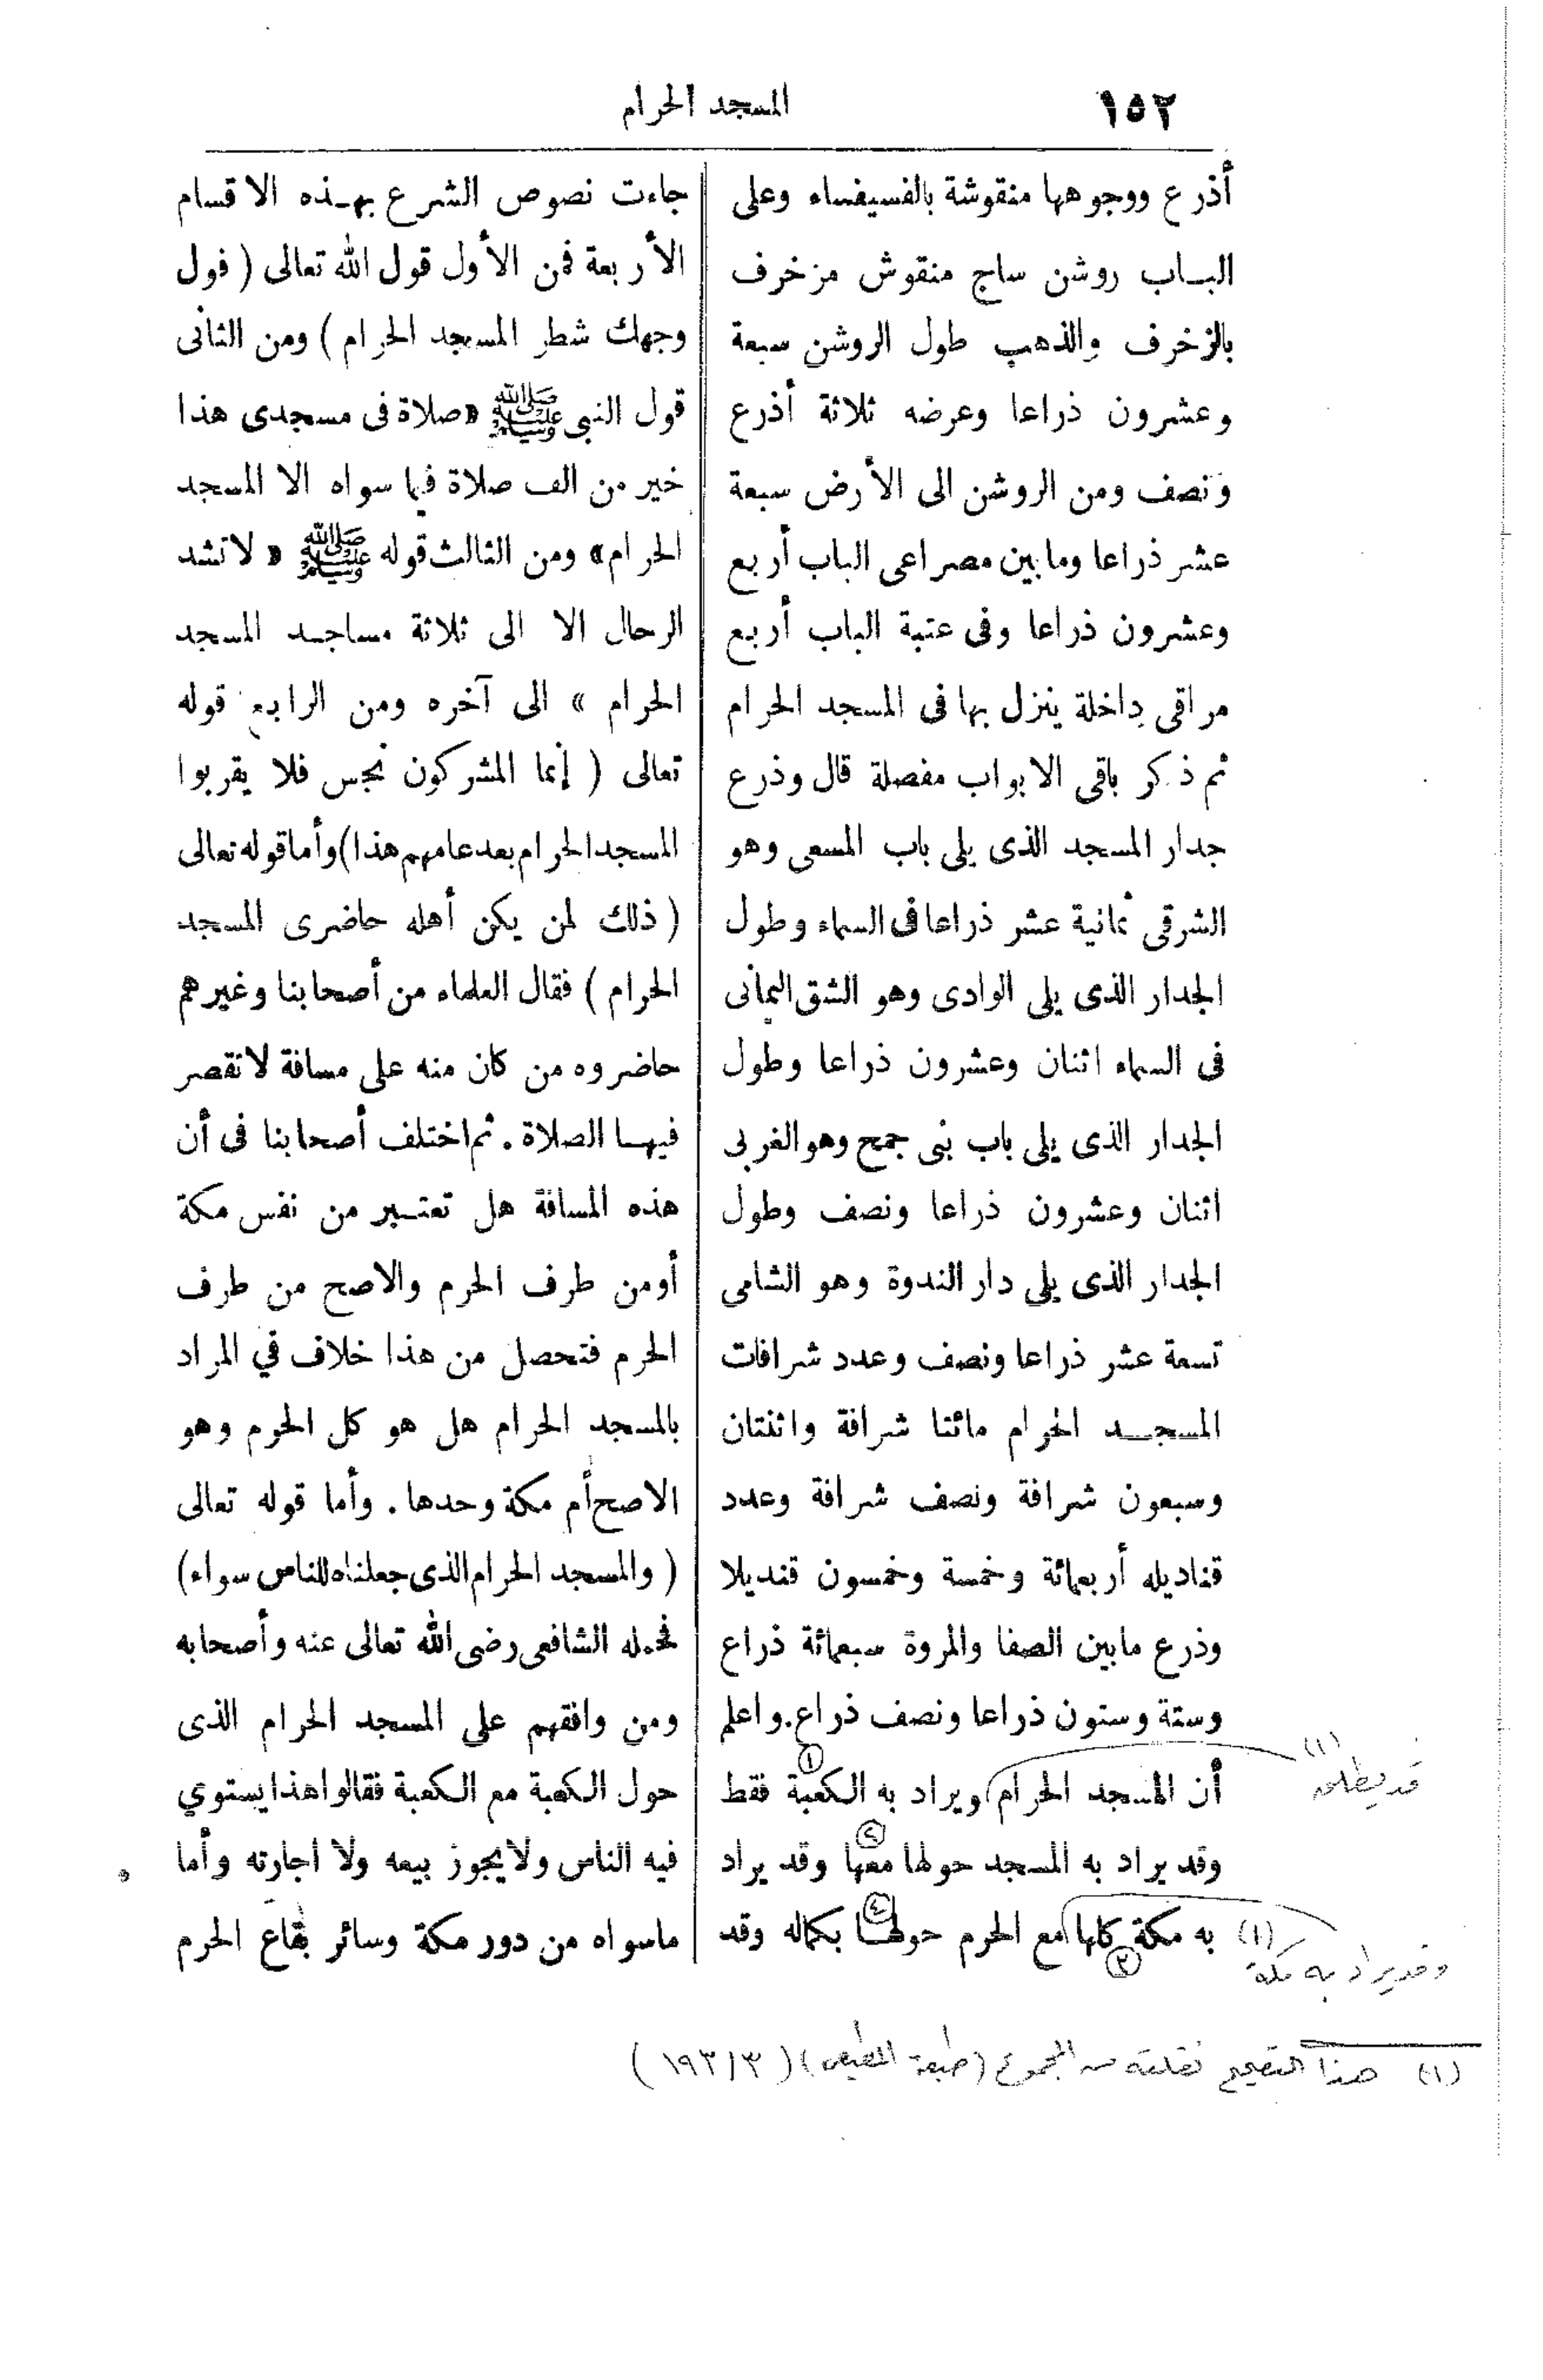 ١٥٢
المسجد الحرام
أذرع ووجوهها منقوشة بالفسيفساء وعلى
البـاب روشن ساج منقوش مزخرف
بالزخرف والذهب طول الروشن سبعة
وعشرون ذراعا وعرضه ثلاثة أذرع
ونصف ومن الروشن الى الأرض سبعة
عشر ذراعا ومابين مصراعى الباب أربع
وعشرون ذراعا وفى عتبة الباب أربع
مراقى داخلة ينزل بها فى المسجد الحرام
ثم ذكر باقى الابواب مفصلة قال وذرع
جدار المسجد الذى يلى باب المسعى وهو
الشرقى ثمانية عشر ذراعا فى السماء وطول
الجدار الذى يلى الوادى وهو الشق اليمانى
فى السماء اثنان وعشرون ذراعا وطول
الجدار الذى يلى باب بنى جمح وهو الغربى
اثنان وعشرون ذراعا ونصف وطول
الجدار الذى يلى دار الندوة وهو الشامى
تسعة عشر ذراعا ونصف وعدد شرافات
المسجـد الحرام مائتا شرافة واثنتان
وسبعون شرافة ونصف شرافة وعدد
قناديله أربعمائة وخمسة وخمسون قنديلا
وذرع مابين الصفا والمروة سبعمائة ذراع
وستة وستون ذراعا ونصف ذراع. واعلم
أن المسجد الحرام ويراد به الكعبة فقط
وقد يراد به المسجد حولها معها وقد يراد
به مكة كلها مع الحرم حولهـا بكماله وقد
جاءت نصوص الشرع بهـذه الاقسام
الأربعة فمن الأول قول الله تعالى ( فول
وجهك شطر المسجد الحرام ) ومن الثانى
قول النبى ﷺ «صلاة فى مسجدى هذا
خير من الف صلاة فيما سواه الا المسجد
الحرام» ومن الثالث قوله ﷺ « لا تشد
الرحال الا الى ثلاثة مساجـد المسجد
الحرام » الى آخره ومن الرابع قوله
تعالى ( إنما المشركون نجس فلا يقربوا
المسجد الحرام بعد عامهم هذا ) وأما قوله تعالى
( ذلك لمن يكن أهله حاضرى المسجد
الحرام ) فقال العلماء من أصحابنا وغيرهم
حاضروه من كان منه على مسافة لا تقصر
فيهـا الصلاة . ثم اختلف أصحابنا فى أن
هذه المسافة هل تعتـبر من نفس مكة
أومن طرف الحرم والاصح من طرف
الحرم فتحصل من هذا خلاف في المراد
بالمسجد الحرام هل هو كل الحرم وهو
الاصح أم مكة وحدها . وأما قوله تعالى
( والمسجد الحرام الذى جعلناه للناس سواء )
فحمله الشافعى رضى الله تعالى عنه وأصحابه
ومن وافقهم على المسجد الحرام الذى
حول الكعبة مع الكعبة فقالوا هذا يستوي
فيه الناس ولايجوز بيعه ولا اجارته وأما
ماسواه من دور مكة وسائر بقاع الحرم
(١)
قد يطلق
(١)
وقد يراد به مكة
(١) هذا التصحيح نقلته من المجموع (طبعة المطيعي) (٣/١٩٣)